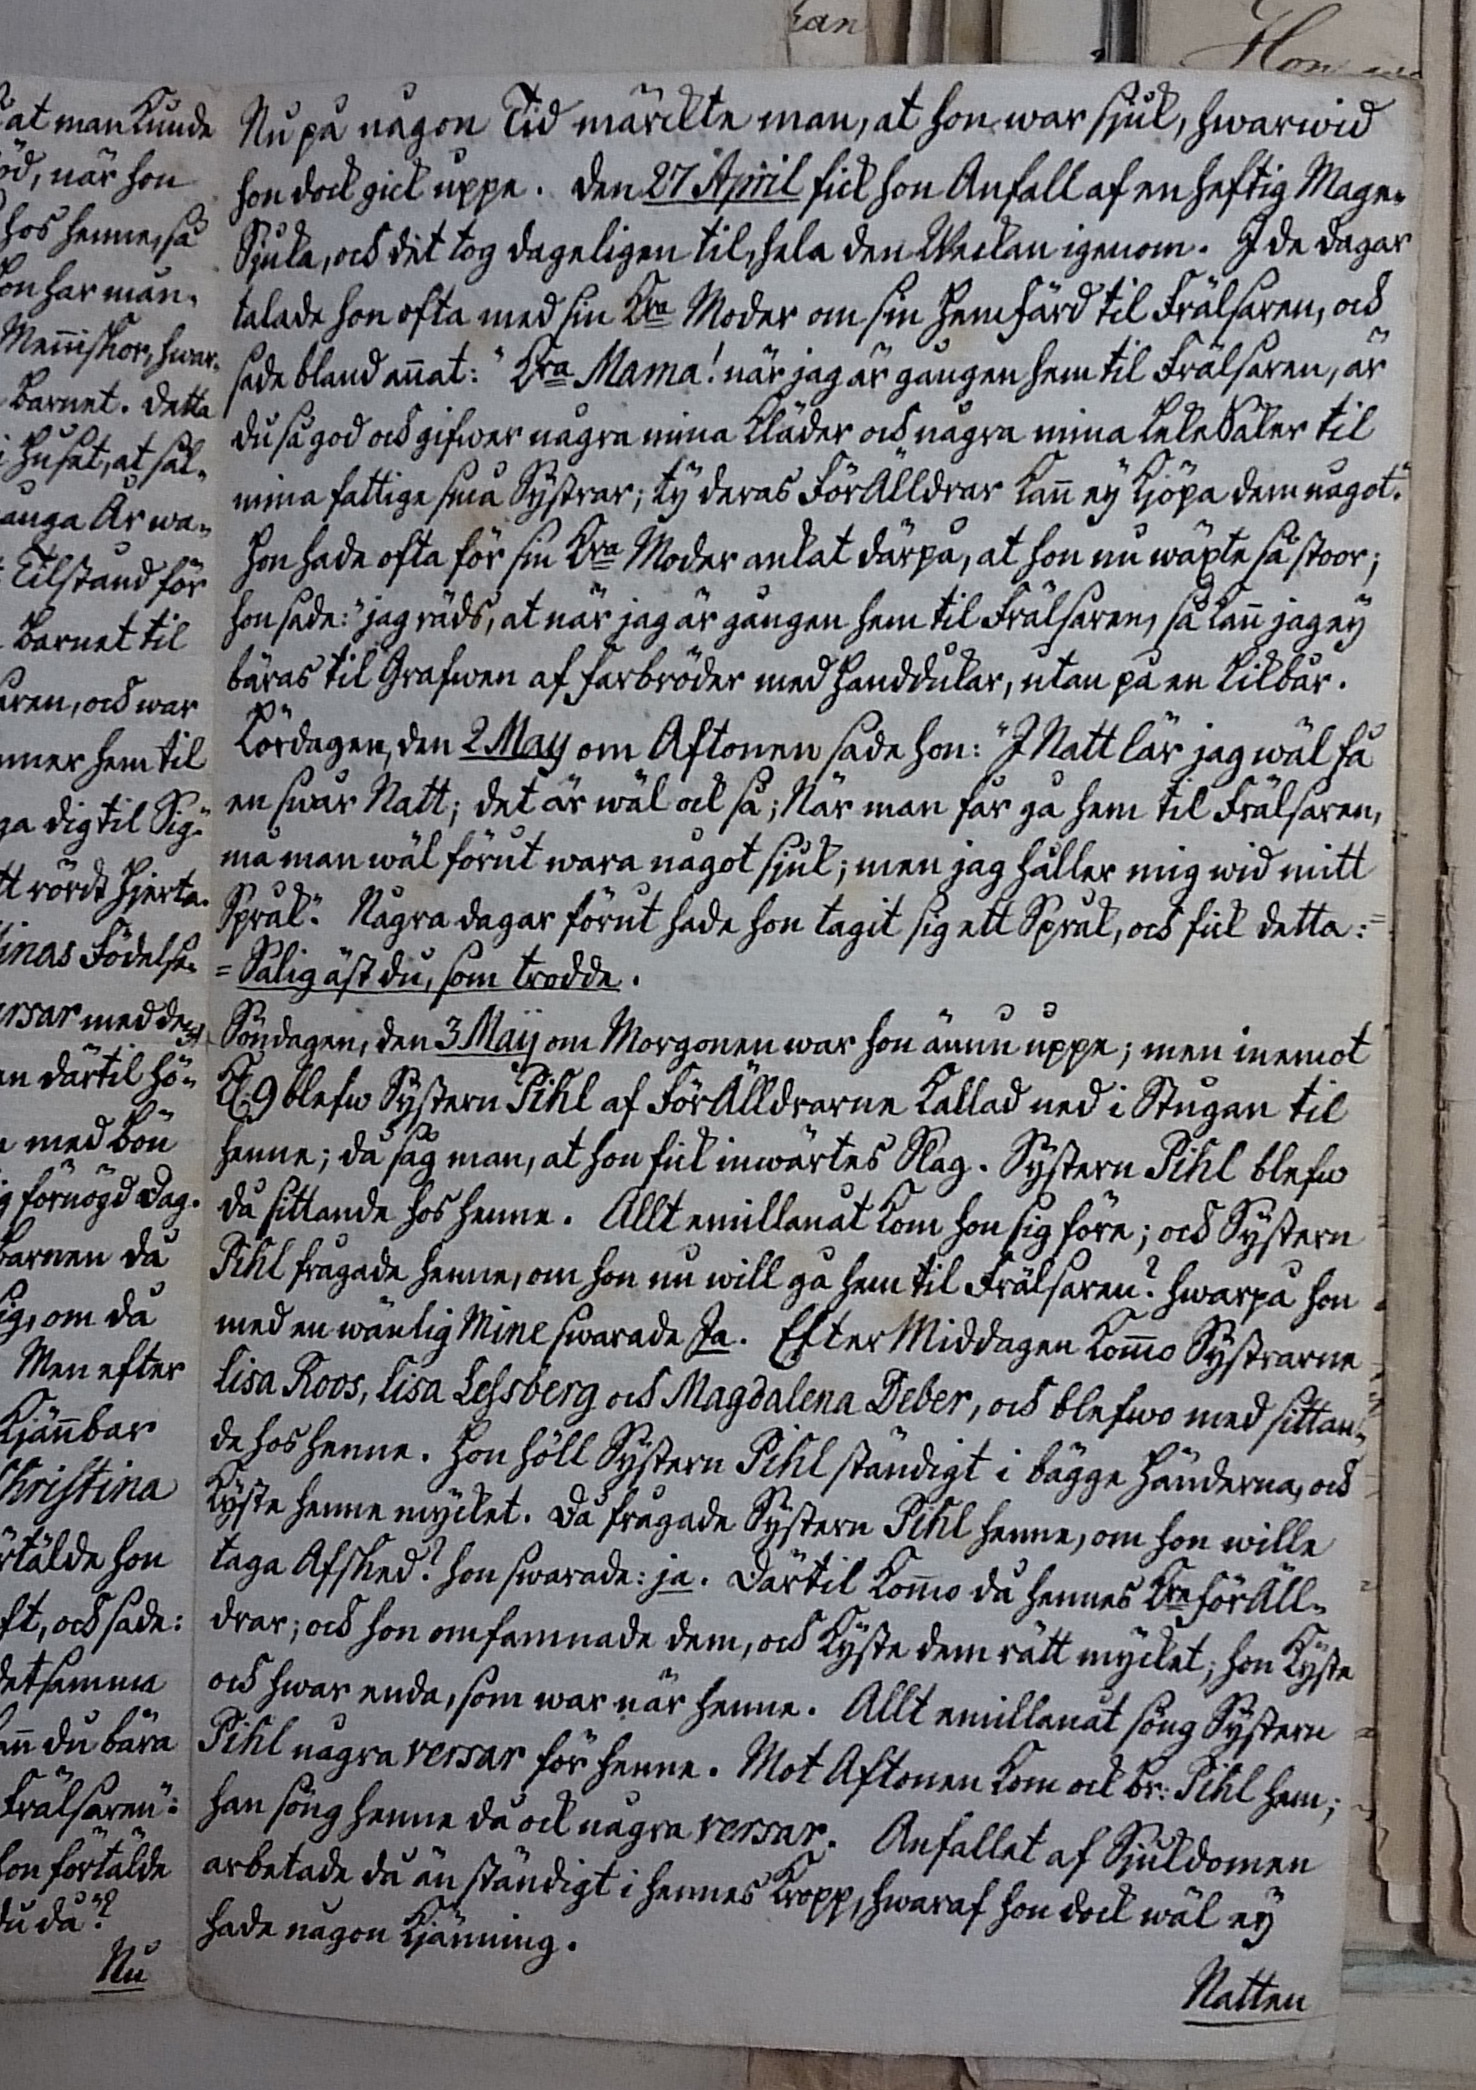 kan
Hon
at man kunde
öd, när hon
hos henne, så
hon har mån„
Menniskor, hwar„
barnet. Detta
i huset, at säl„
ånga År wa„
Tilstånd för
barnet til
aren, och war
mmer hem til
ga dig til Sig"
tt rördt hjerta.
inas Födelse„
versar med de
en därtil hö„
med bön
ig förnögd Dag.
barnen då
sig, om då
Men efter
kjännbar
Christina
rtälde hon
ft, och sade:
detsamma
ann du bära
Frälsaren":
hon förtälde
du då"?
Nu
Nu på någon Tid märckte man, at hon war sjuk, hwarwid
hon dock gick uppe. Den 27 April fick hon Anfall af en heftig Mage„
Sjuka, och dit tog dageligen til, hela den Weckan igenom. I de dagar
talade hon ofta med sin Kra Moder om sin Hemfärd til Frälsaren, och
sade bland annat: "Kra Mama! när jag är gången hem til Frälsaren, är
du så god och gifwer några mina Kläder och några mina LekeSaker til
mina fattige små Systrar; ty deras FörÄlldrar kan̄ ey kjöpa dem något."
Hon hade ofta för sin Kra Moder ankat därpå, at hon nu wäxte så stoor;
hon sade: "jag räds, at när jag är gången hem til Frälsaren, så kan̄ jag ey
bäras til Grafwen af farbröder med Handdukar, utan på en Likbår.
Lördagen, den 2 May om Aftonen sade hon: "I Natt lär jag wäl få
en swår Natt; det är wäl ock så; När man får gå hem til Frälsaren,
må man wäl förut wara något sjuk; men jag håller mig wid mitt
Språk". Några dagar förut hade hon tagit sig ett Språk, och fick detta: =
= Salig äst du, som trodde.
Söndagen, den 3 Maij om Morgonen war hon ännu uppe; men inemot
Kl. 9 blefw Systern Pihl af FörÄlldrarne kallad ned i Stugan til
henne; då såg man, at hon fick inwärtes Slag. Systern Pihl blefw
då sittande hos henne. Allt emillanåt kom hon sig före; och Systern
Pihl frågade henne, om hon nu will gå hem til Frälsaren? hwarpå hon
med en wänlig Mine swarade Ja. Efter Middagen kom̄o Systrarne
Lisa Roos, Lisa Lessberg och Magdalena Deber, och blefwo med sittan„
de hos henne. Hon höll Systern Pihl ständigt i bägge Händerna, och
kyste henne mycket. Då frågade Systern Pihl henne, om hon wille
taga Afsked? hon swarade: ja. Därtil kom̄o då hennes Kra förÄll„
drar; och hon omfamnade dem, och kyste dem rätt mycket; hon kyste
och hwar enda, som war när henne. Allt emillanåt söng Systern
Pihl några versar för henne. Mot Aftonen kom ock br: Pihl hem;
han söng henne då ock några versar. Anfallet af Sjukdomen
arbetade då än ständigt i hennes Kropp, hwaraf hon dock wäl ey
hade någon kjänning.
Natten